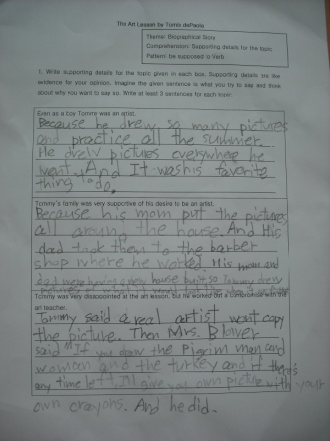 The Art Lesson by Tomie dePaola
Theme: Biographical Story
Comprehension: Supporting details for the topic
Pattern: be supposed to Verb
1. Write supporting details for the topic given in each box. Supporting details are like
evidence for your opinion. Imagine the given sentence is what you try to say and think
about why you want to say so. Write at least 3 sentences for each topic.
Even as a boy Tommy was an artist.
Because he drew so many pictures
and practice all the summer.
He drew pictures everywhere he
went. And It was his favorite
thing to do.
Tommy's family was very supportive of his desire to be an artist.
Because his mom put the pictures
all around the house. And His
dad took them to the barber
shop where he worked. His mom and
dad were a new house so Tommy drew
pictures
Tommy was very disappointed at the art lesson, but he worked out a compromise with the
art teacher.
Tommy said a real artist wont copy
the picture. Then Mrs. Blower
said "If you draw the Pigrim man and
woman and the turkey and if there's
any time left, I'll give you own picture with your
own crayons. And he did.